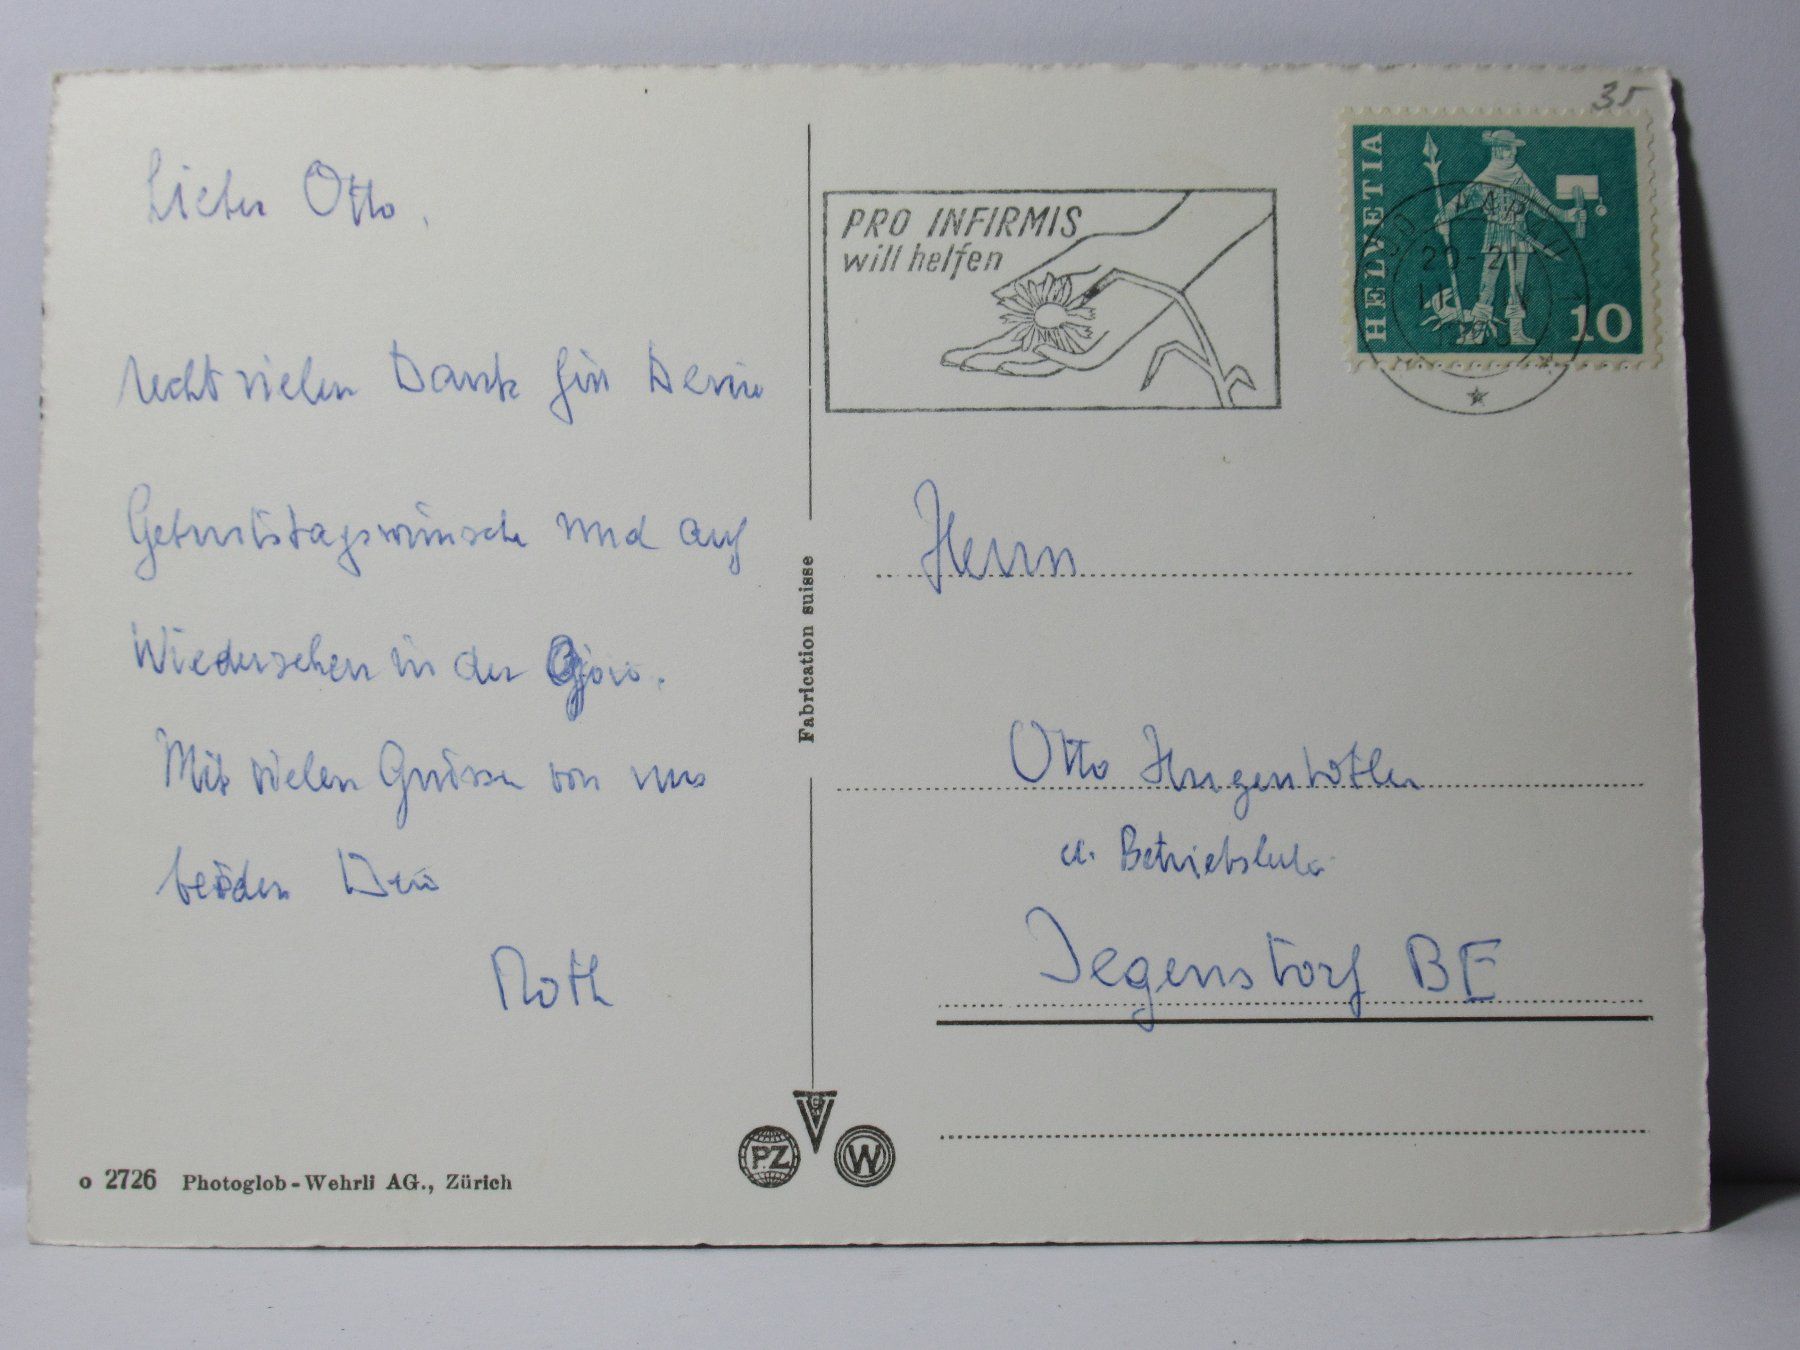 Lieber Otto,
recht vielen Dank für Deine
Geburtstagswünsche und auf
Wiedersehen in der
Mit vielen Grüssen von uns
beiden Dein
Roth
o 2726 Photoglob-Wehrli AG., Zürich
Fabrication suisse
PZ
W
PRO INFIRMIS
will helfen
HELVETIA
10
35
AARAU
20-21
Herrn
Otto Hugentobler
Jegenstorf BE